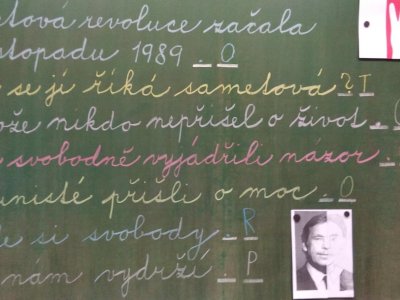 etová revoluce začala
istopadu 1989 . O
se jí říká sametová ? I
ože nikdo nepřišel o život .
svobodně vyjádřili názor .
unisté přišli o moc . O
e si svobody . R
nam vydrží . P